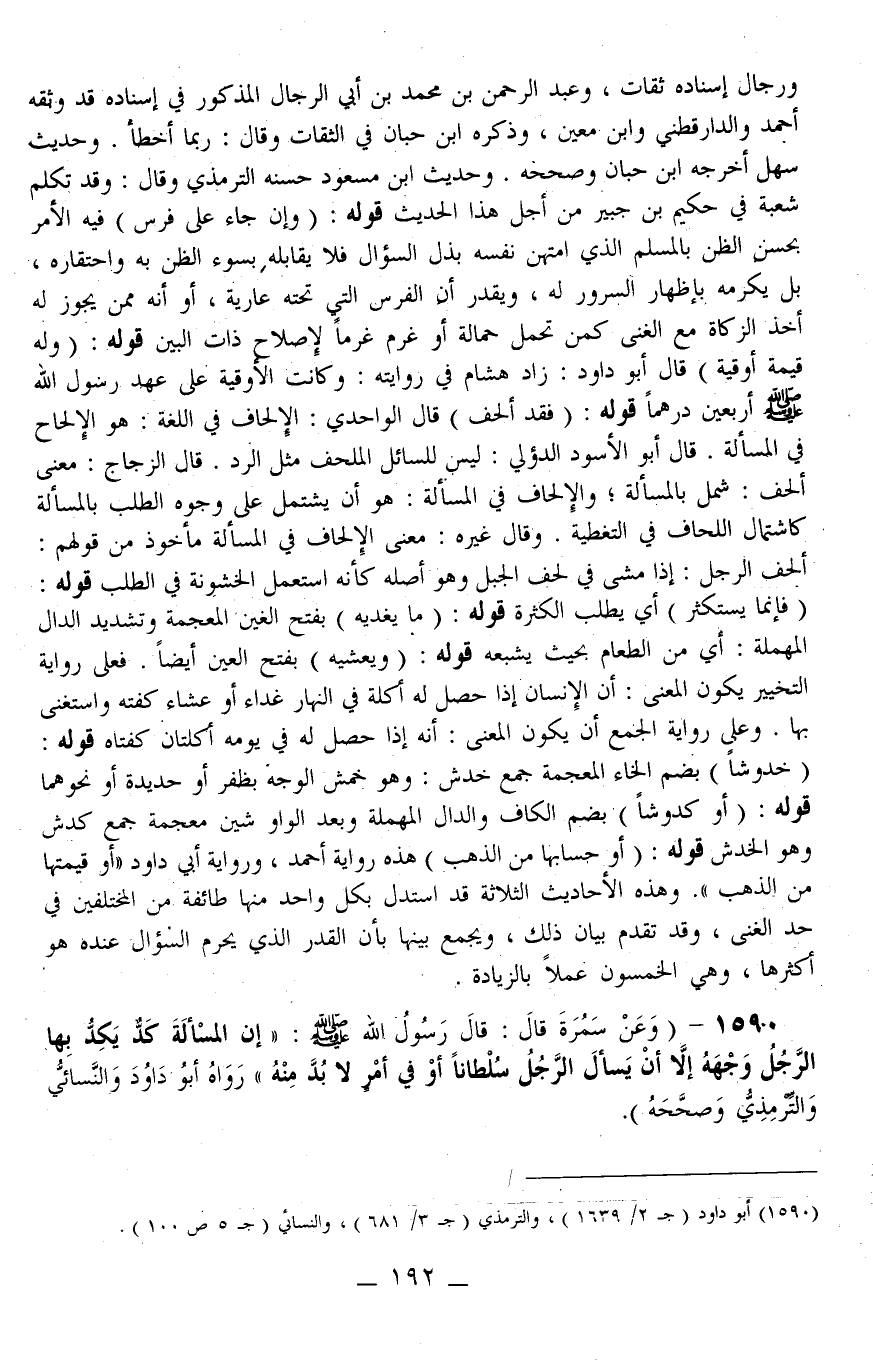 ورجال إسناده ثقات ، وعبد الرحمن بن محمد بن أبي الرجال المذكور في إسناده قد وثقه
أحمد والدارقطني وابن معين ، وذكره ابن حبان في الثقات وقال : ربما أخطأ . وحديث
سهل أخرجه ابن حبان وصححه . وحديث ابن مسعود حسنه الترمذي وقال : وقد تكلم
شعبة في حكيم بن جبير من أجل هذا الحديث قوله : ( وإن جاء على فرس ) فيه الأمر
بحسن الظن بالمسلم الذي امتهن نفسه بذل السؤال فلا يقابله بسوء الظن به واحتقاره ،
بل يكرمه بإظهار السرور له ، ويقدر أن الفرس التي تحته عارية ، أو أنه ممن يجوز له
أخذ الزكاة مع الغنى كمن تحمل حمالة أو غرم غرماً لإصلاح ذات البين قوله : ( وله
قيمة أوقية ) قال أبو داود : زاد هشام في روايته : وكانت الأوقية على عهد رسول الله
ﷺ أربعين درهماً قوله : ( فقد ألحف ) قال الواحدي : الإلحاف في اللغة : هو الإلحاح
في المسألة . قال أبو الأسود الدؤلي : ليس للسائل الملحف مثل الرد . قال الزجاج : معنى
ألحف : شمل بالمسألة ؛ والإلحاف في المسألة : هو أن يشتمل على وجوه الطلب بالمسألة
كاشتمال اللحاف في التغطية . وقال غيره : معنى الإلحاف في المسألة مأخوذ من قولهم :
ألحف الرجل : إذا مشى في لحف الجبل وهو أصله كأنه استعمل الخشونة في الطلب قوله :
( فإنما يستكثر ) أي يطلب الكثرة قوله : ( ما يغديه ) بفتح الغين المعجمة وتشديد الدال
المهملة : أي من الطعام بحيث يشبعه قوله : ( ويعشيه ) بفتح العين أيضاً . فعلى رواية
التخيير يكون المعنى : أن الإنسان إذا حصل له أكلة في النهار غداء أو عشاء كفته واستغنى
بها . وعلى رواية الجمع أن يكون المعنى : أنه إذا حصل له في يومه أكلتان كفتاه قوله :
( خدوشاً ) بضم الخاء المعجمة جمع خدش : وهو خمش الوجه بظفر أو حديدة أو نحوهما
قوله : ( أو كدوشاً ) بضم الكاف والدال المهملة وبعد الواو شين معجمة جمع كدش
وهو الخدش قوله : ( أو حسابها من الذهب ) هذه رواية أحمد ، ورواية أبي داود «أو قيمتها
من الذهب ». وهذه الأحاديث الثلاثة قد استدل بكل واحد منها طائفة من المختلفين في
حد الغنى ، وقد تقدم بيان ذلك ، ويجمع بينها بأن القدر الذي يحرم السؤال عنده هو
أكثرها ، وهي الخمسون عملاً بالزيادة .
١٥٩٠ - ( وَعَنْ سَمُرَةَ قالَ : قالَ رَسُولُ الله ﷺ : « إن المسْألَةَ كَدٌّ يَكِدُّ بِها
الرَّجُلُ وَجْهَهُ إلَّا أنْ يَسألَ الرَّجُلُ سُلْطاناً أوْ في أمْرٍ لا بُدَّ مِنْهُ » رَوَاهُ أبُو دَاوُدَ وَالنَّسائيُّ
وَالتِّرْمِذِيُّ وَصحَّحَهُ ).
(١٥٩٠) أبو داود ( جـ ٢/ ١٦٣٩ ) ، والترمذي ( جـ ٣/ ٦٨١ ) ، والنسائي ( جـ ٥ ص ١٠٠ ) .
_ ١٩٢ _